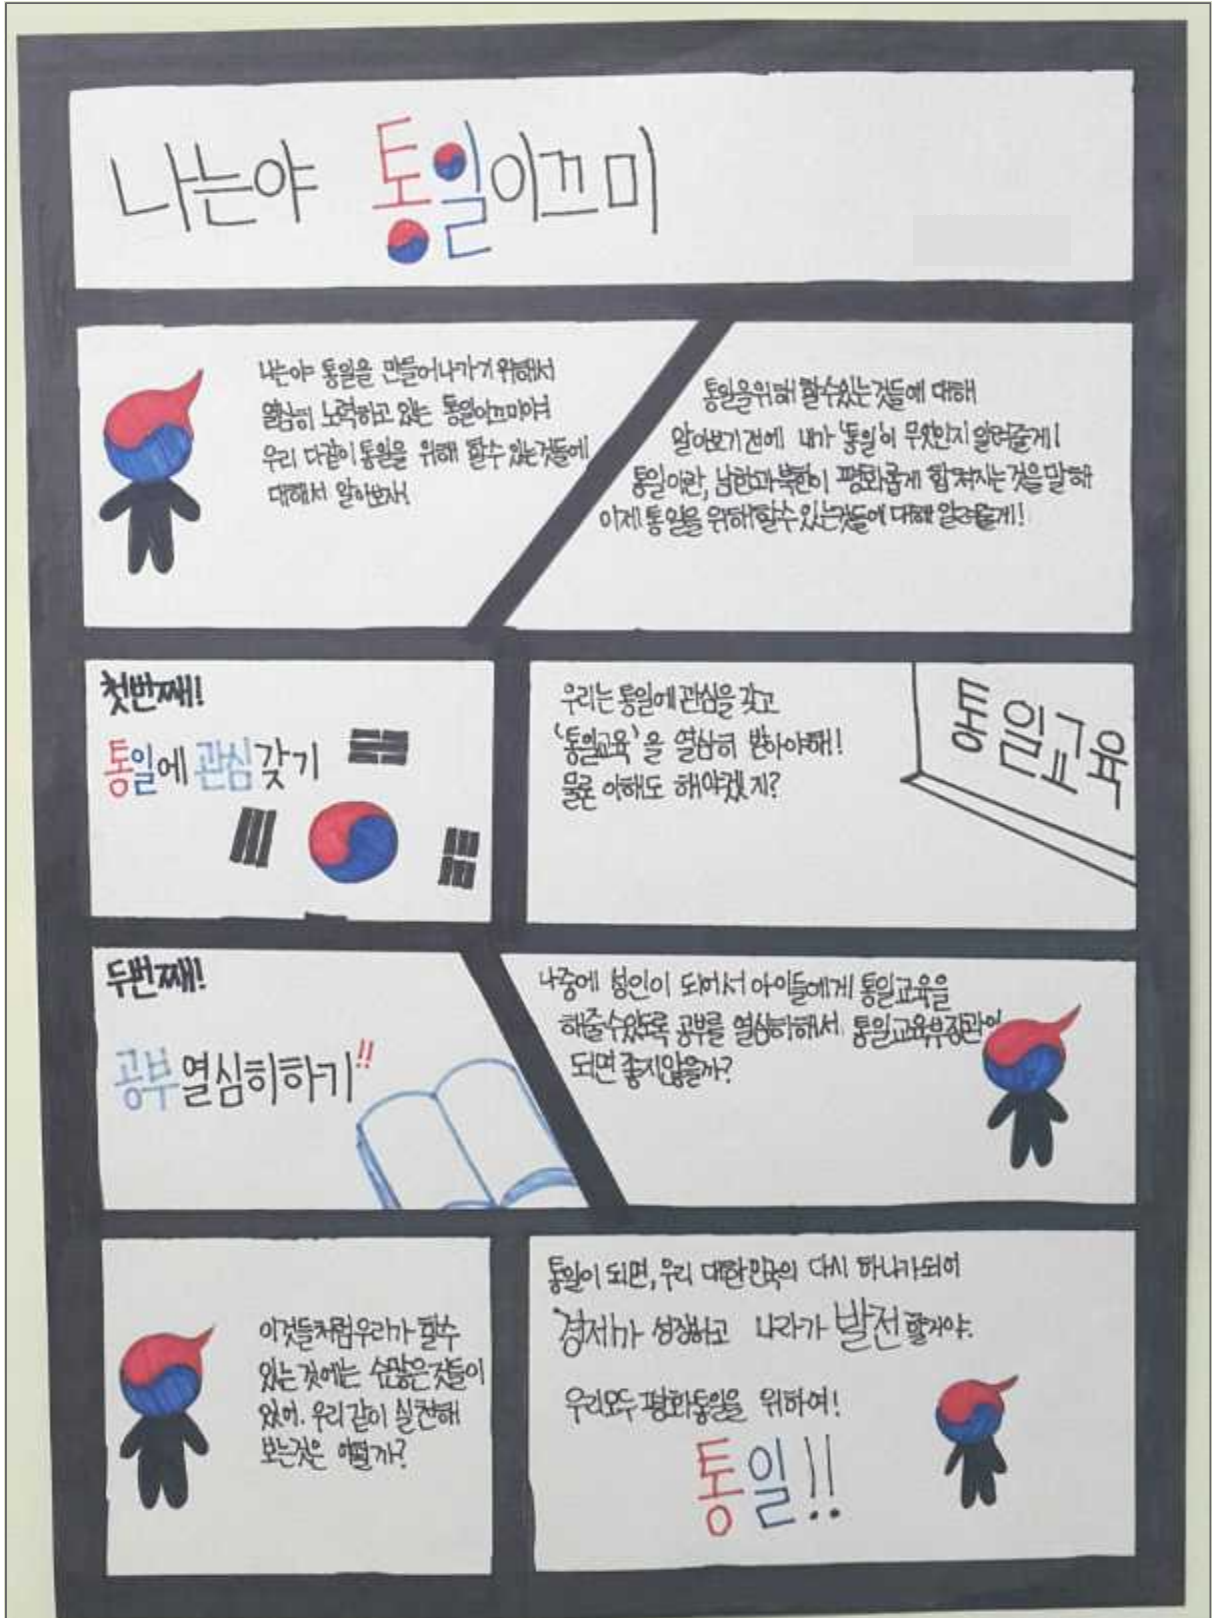 나는야 통일이끄미
나는야 통일을 만들어나가기 위해서
열심히 노력하고 있는 통일이끄미야!
우리 다같이 통일을 위해 할수 있는것들에
대해서 알아보자!
통일을위해 할수있는것들에 대해
알아보기전에 내가 '통일'이 무엇인지 알려줄게!
통일이란, 남한과북한이 평화롭게 합쳐지는 것을말해
이제 통일을 위해 할수있는것들에 대해 알려줄게!
첫번째!
통일에 관심갖기
우리는 통일에 관심을 갖고
'통일교육'을 열심히 받아야해!
물론 이해도 해야겠지?
통일교육
두번째!
공부열심히하기!!
나중에 성인이 되어서 아이들에게 통일교육을
해줄수있도록 공부를 열심히해서 통일교육부장관이
되면 좋지않을까?
이것들처럼우리가 할수
있는것에는 수많은것들이
있어. 우리같이 실천해
보는것은 어떨까?
통일이 되면, 우리 대한민국의 다시 하나가되어
경제가 성장하고 나라가 발전할거야.
우리모두 평화통일을 위하여!
통일!!